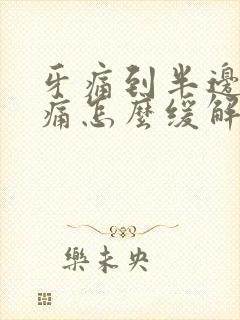 牙痛到半邊
痛怎麼緩解
樂未央